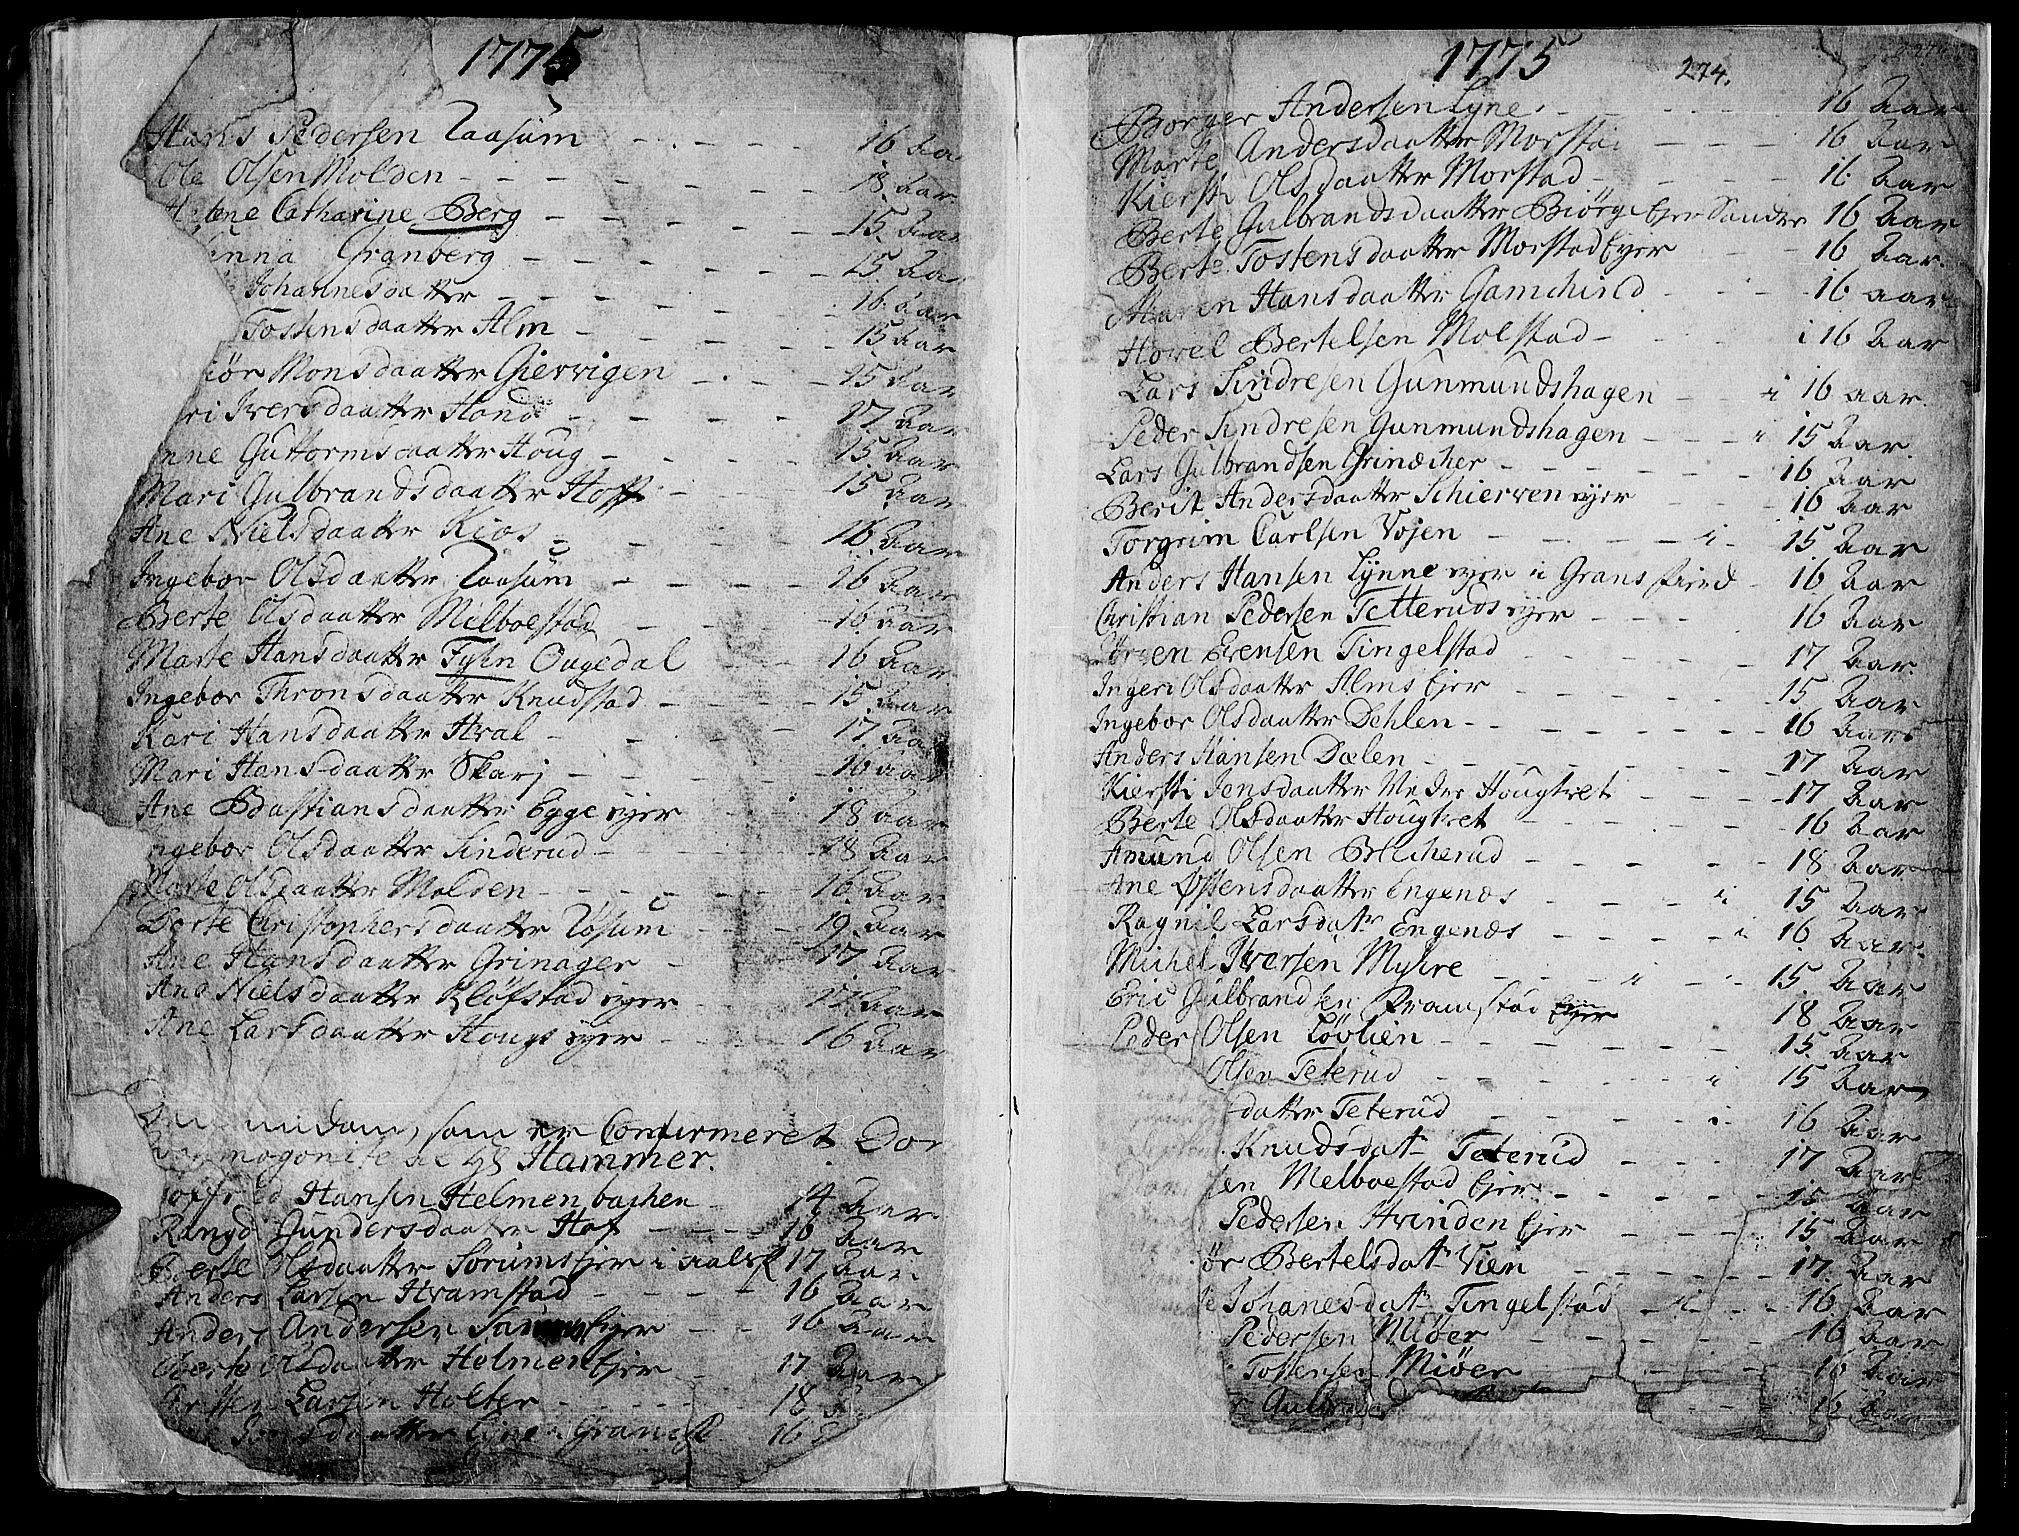 1775
Hans Pedersen Raasum - - - - 16 Aa
Ole Olsen Molden - - - - - 18 Aar
Helene Catharine Berg - - - - 15 Aar
Anna Granberg - - - - - 15 Aa
Johannesdatter - - - - 16 Aar
Tostensdaatter Alm - - - - 15 Aar
iør Monsdaatter Gierrigen - - - 15 Aar
ri Iversdaatter Hand - - - - 17 Aar
nne Guttormsdaatter Houg - - - - 15 Aar
Mari Gulbrandsdaatter Hoff - - - 15 Aar
Ane Nielsdaatter Kios - - - - 16 Aar
Ingebor Olsdaatter Raasum - - - - 16 Aar
Berte Olsdaatter Melboestad - - - 16 Aar
Marte Hansdaatter Fysen Ougedal - - 16 Aar
Ingebor Thronsdaatter Knudstad - - - 15 Aar
Kari Hansdaatter Hval - - - 17 Aar
Mari Hansdaatter Skarj - - - - 16 Aar
Ane Bastiansdaatter Egge eyer - - - 18 Aar
ngebor Olsdaatter Sinderud - - - 18 Aar
Marte Olsdaatter Molden - - - - 16 Aar
Dorte Christophersdaatter Røsum - - - 19 Aar
Ane Hansdaatter Grinager - - - 17 Aar
Ane Nielsdaatter Kløfstad eyer - - - 17 Aar
Ane Larsdaatter Hougs eyer - - - 16 Aar
som er Confirmeret
Hammer.
Hansen Helmenbachen - 14 Aar
Rangd Gundersdaatter Hof - - - 16 Aar
Berte Olsdaatter Sørums Ejer i 17 Aar
Anders Larsen Hramstad - - - - 16 Aar
Anders Andersen - - 16 Aar
Berte Olsdaatter Holmen Ejer - - 17 Aar
Larsen Holter - - - - 18
Jonsdaatter Lyne Grans 16
1775 274.
Borger Andersen Lyne - - - - 16 Aar
Marte Andersdaatter Morstad - - - 16 Aar
Kiersti Olsdaatter Morstad - - - - 16 Aar
Berte Gulbrandsdaatter Biørge Ejer Søndre 16 Aar
Berte Tostensdaatter Morstad Eyer - 16 Aar
Maren Hansdaatter Gamchind - - - 16 Aar
Hovel Bertelsen Molstad - - - i 16 Aar
Lars Sindresen Gunmundshagen - - i 16 Aar.
Peder Sindresen Gunmundshagen - - - i 15 Aar.
Lars Gulbrandsen Grinæcher - - - - - 16 Aar
Berit Andersdaatter Schierven eyer - - - 16 Aar
Torgrim Carlsen Vojen - - - - i - 15 Aar
Anders Hansen Lynne eyer i Grans fierd - 16 Aar
Christian Pedersen Tetteruds eyer - - - 16 Aar
Sørsen Evensen Tingelstad - - - - 17 Aar.
Ingeri Olsdaatter Alms Ejer - - - - - 15 Aar
Ingebor Olsdaatter Dehlen - - - - - 16 Aar
Anders Hansen Dælen - - - - - - 17 Aar
Kiersti Jensdaatter Neder Hougtvet - - - - 17 Aar
Berte Olsdaatter Hougtvet - - - - - 16 Aar
Amund Olsen Blecherud - - - - - 18 Aar
Ane Østensdaatter Engenæs - - - i 15 Aar
Ragnil Larsdatr Engenæs - - - - i 16 Aar.
Michel Iversen Myhre - - - i - - 15 Aar
Eric Gulbrandsen Framstad Ejer 18 Aar
Peder Olsen Løvlien - - - - - i 15 Aar
Olsen Teterud - - - - i 15 Aar
datter Teterud - - - - i 16 Aar
Knudsdatr Teterud - - - 17 Aar
sen Melboestad Ejer - - - - 15 Aar
Pedersen Hvinden Ejer - - - - 15 Aar
ør Bertelsdatr Vien - - - - - 17 Aar
e Johanesdatr Tingelstad - i - - 16 Aar
Pedersen Miøer - - - - - - 16 Aar
Tostensen Miøer - - - - 16 Aar
Gulbrands - - - 16 Aar